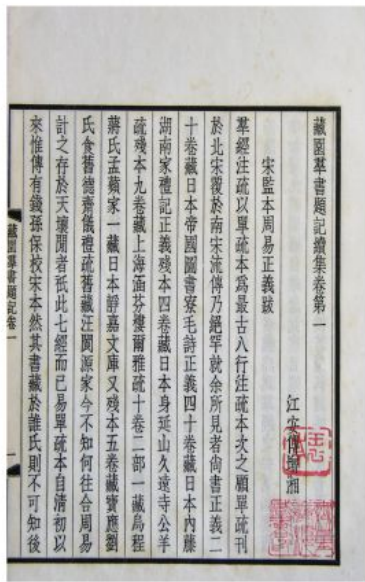 藏園羣書題記續集卷第一
江安傅增湘
宋監本周易正義跋
羣經注疏以單疏本爲最古八行注疏本次之顧單疏刊
於北宋覆於南宋流傳乃絕罕就余所見者尚書正義二
十卷藏日本帝國圖書寮毛詩正義四十卷藏日本內藤
湖南家禮記正義殘本四卷藏日本身延山久遠寺公羊
疏殘本九卷藏上海涵芬樓爾雅疏十卷二部一藏烏程
蔣氏孟蘋家一藏日本靜嘉文庫又殘本五卷藏寶應劉
氏食舊德齋儀禮疏舊藏汪閬源家今不知何往合周易
計之存於天壤間者祇此七經而已易單疏本自清初以
來惟傳有錢孫保校宋本然其書藏於誰氏則不可知後
藏園羣書題記卷一
一